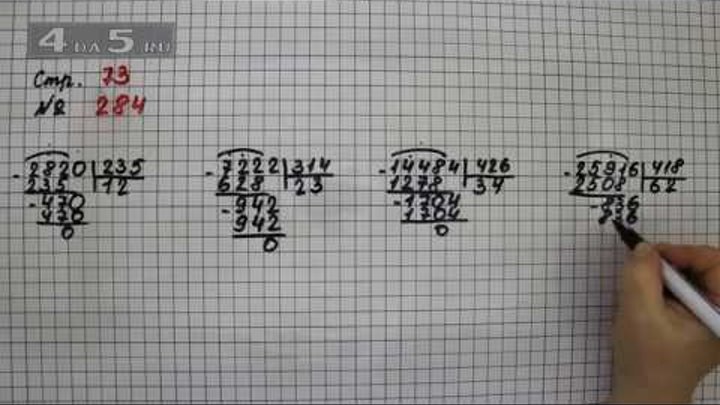 4 DA 5 RU
Стр. 73
№ 284
- 2820 | 235
235 | 12
- 470
470
0
- 7222 | 314
628 | 23
- 942
942
0
- 14484 | 426
1278 | 34
- 1704
1704
0
- 25916 | 418
2508 | 62
- 836
836